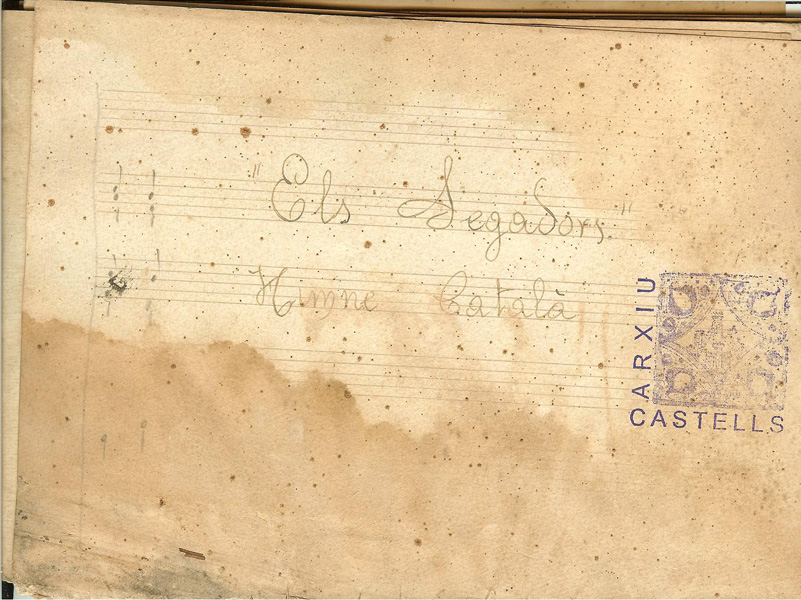 "Els Segadors."
Himne Català
ARXIU
CASTELLS